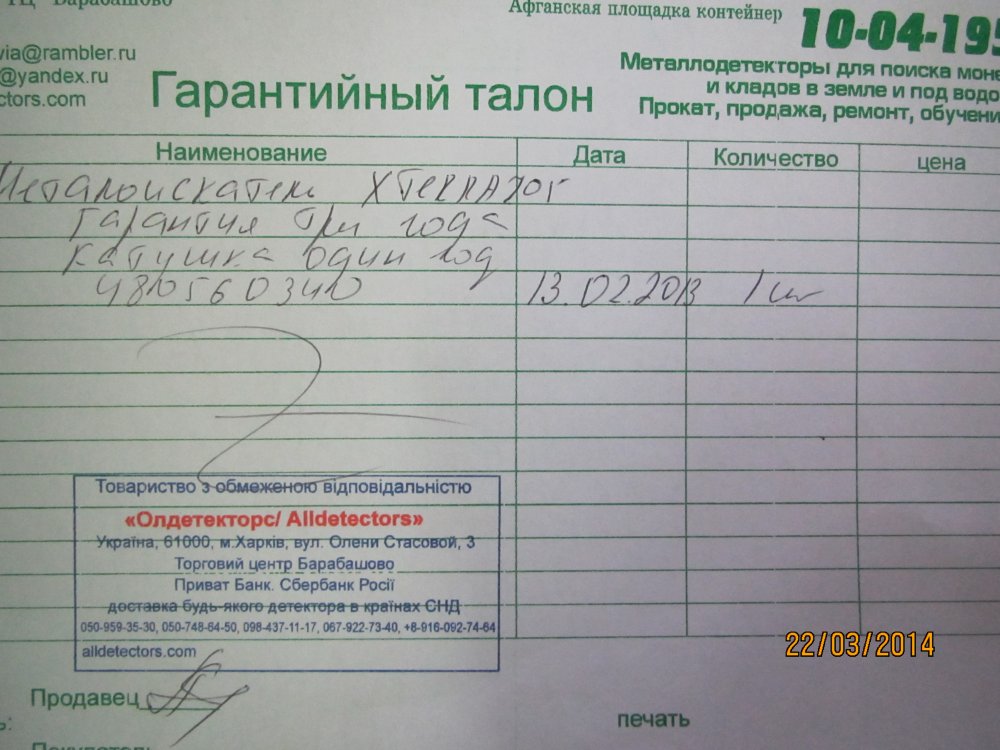 ТЦ "Барабашово
Афганская площадка контейнер
10-04-195
via@rambler.ru
@yandex.ru
ctors.com
Гарантийный талон
Металлодетекторы для поиска моне
и кладов в земле и под водо
Прокат, продажа, ремонт, обучени
Наименование Дата Количество цена
Металоискатель X TERRA 705
Гарантия три года
катушка один год
4805603410 13.02.2013 1 шт
Товариство з обмеженою відповідальністю
«Олдетекторс/ Alldetectors»
Україна, 61000, м.Харків, вул. Олени Стасовой, 3
Торговий центр Барабашово
Приват Банк. Сбербанк Росії
доставка будь-якого детектора в країнах СНД
050-959-35-30, 050-748-64-50, 098-437-11-17, 067-922-73-40, +8-916-092-74-64
alldetectors.com
22/03/2014
Продавец
печать
ь:
Покупатель